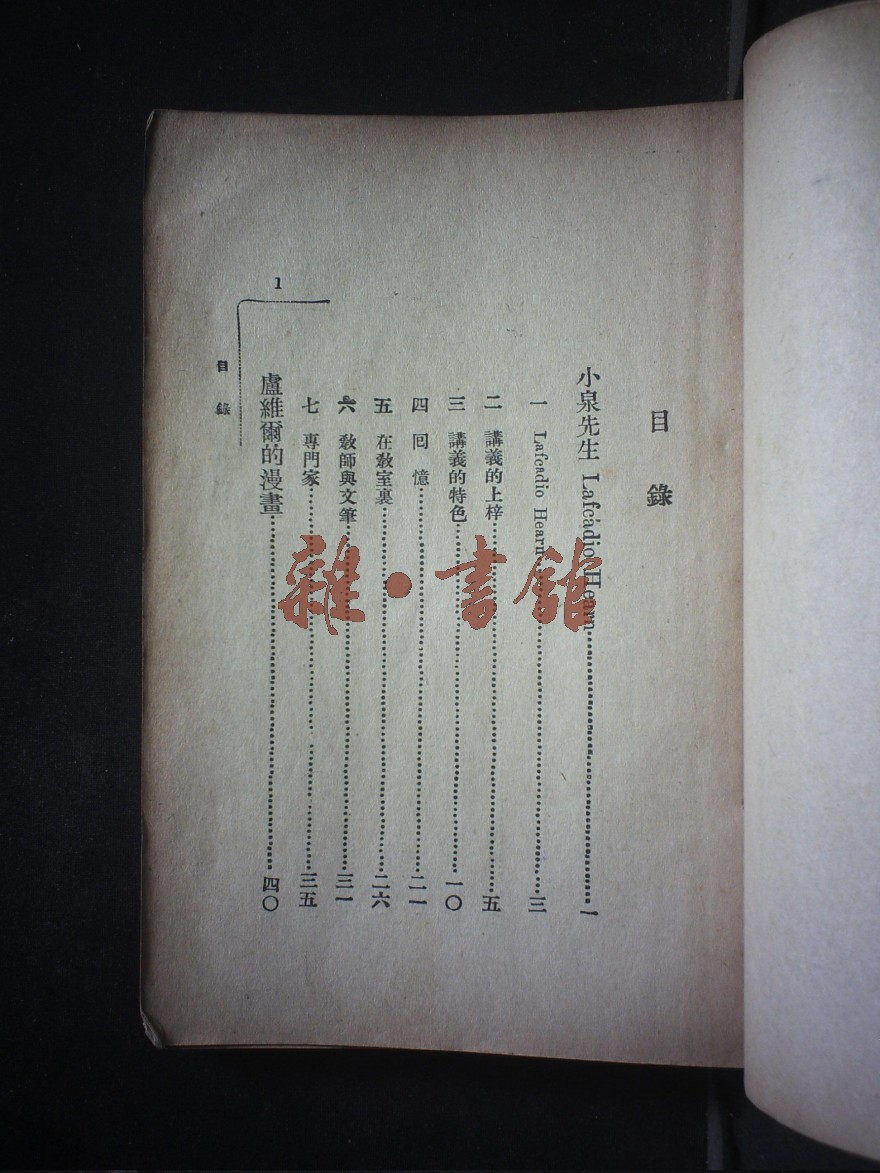 目錄
小泉先生 Lafcadio Hearn……一
一 Lafcadio Hearn……三
二 講義的上梓……五
三 講義的特色……一〇
四 囘憶……二一
五 在敎室裏……二六
六 敎師與文筆……三一
七 專門家……三五
盧維爾的漫畫……四〇
1
目錄
雜·書館